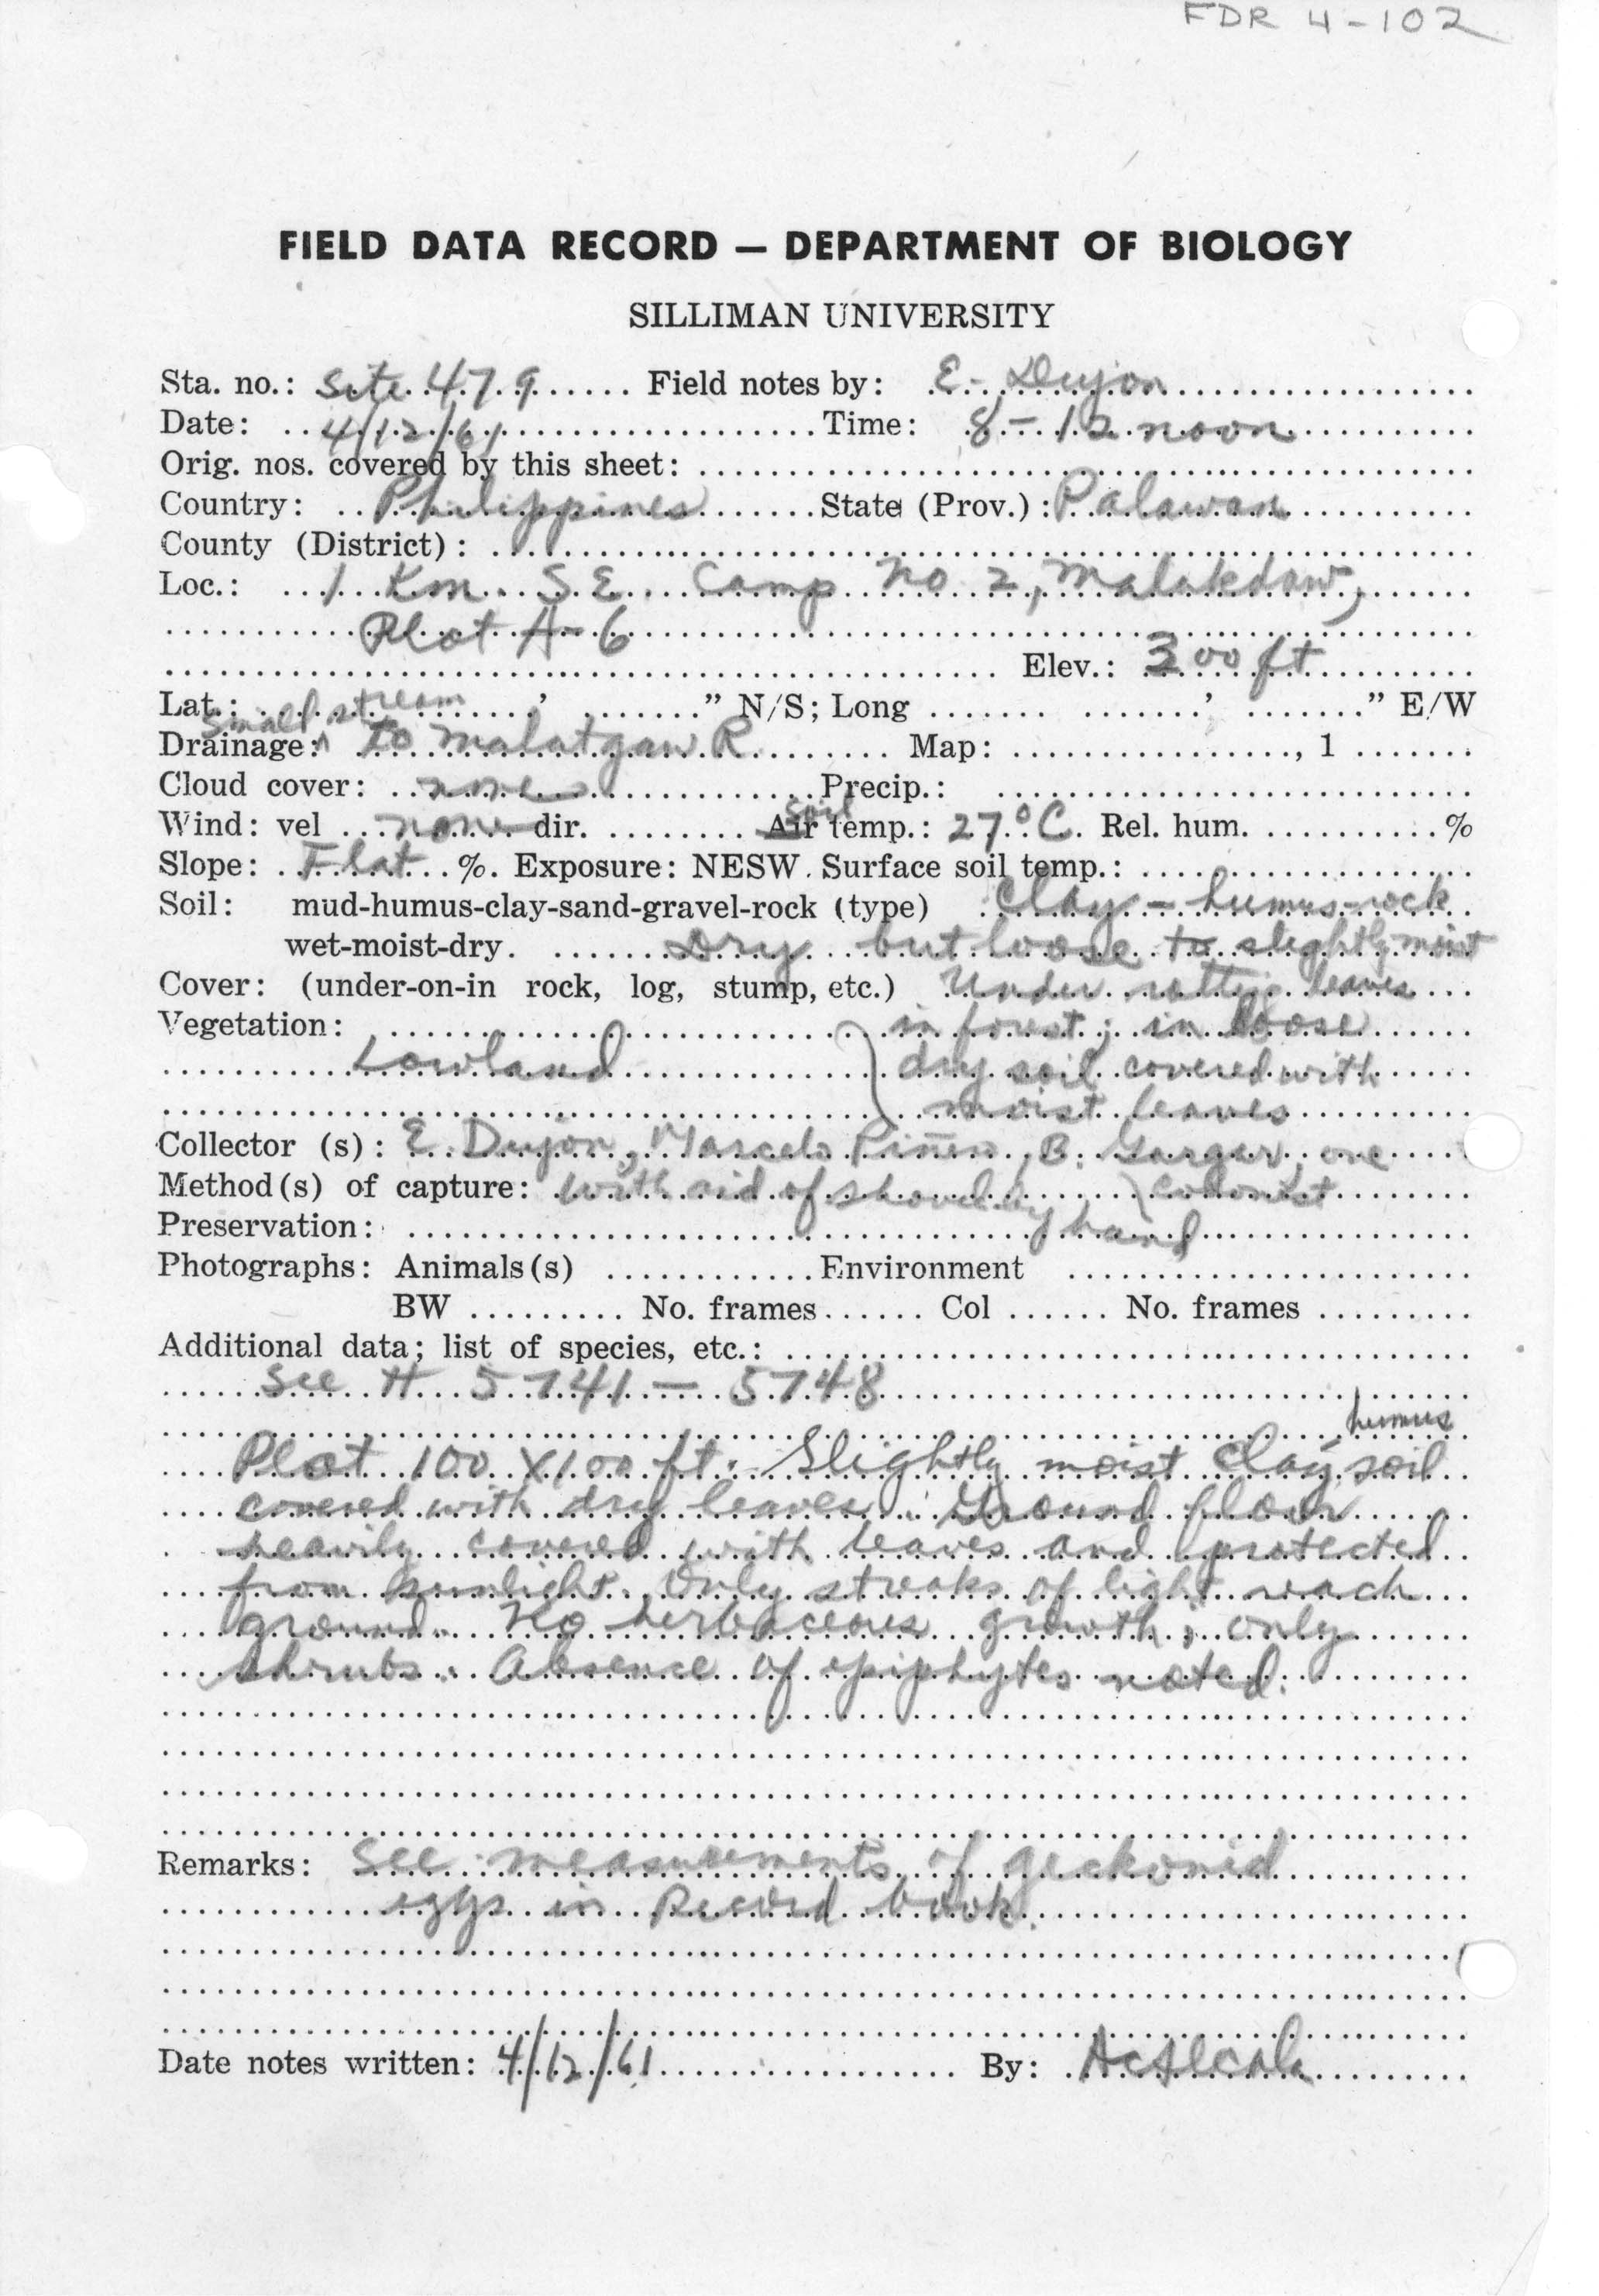 FDR 4-102
FIELD DATA RECORD — DEPARTMENT OF BIOLOGY
SILLIMAN UNIVERSITY
Sta. no.: Site 479 Field notes by: E. Dujon
Date: 4/12/61 Time: 8 - 12 noon
Orig. nos. covered by this sheet:
Country: Philippines State (Prov.): Palawan
County (District):
Loc.: 1 Km S.E. Camp No 2, Malakdaw,
Plot A-6
Elev.: 300 ft
Lat.: ' " N/S; Long ' " E/W
small stream
Drainage: ^ to Malatgaw R. Map: , 1
Cloud cover: none Precip.:
Soil
Wind: vel none dir. Air temp.: 27°C. Rel. hum. %
Slope: Flat %. Exposure: NESW. Surface soil temp.:
Soil: mud-humus-clay-sand-gravel-rock (type) Clay - humus-rock
wet-moist-dry. Dry but loose to slightly moist
Cover: (under-on-in rock, log, stump, etc.) Under rotting leaves
Vegetation: in forest; in loose
Lowland dry soil covered with
moist leaves
Collector (s): E. Dujon, Marcelo Piñero, B. Gargar, one
Method(s) of capture: with aid of shovel by colonist
Preservation: hand
Photographs: Animals(s) Environment
BW No. frames Col No. frames
Additional data; list of species, etc.:
See H 5741 - 5748
humus
Plot 100 X 100 ft. Slightly moist clay soil
covered with dry leaves. Ground floor
heavily covered with leaves and protected
from sunlight. Only streaks of light reach
ground. No herbaceous growth; only
shrubs. Absence of epiphytes noted.
Remarks: See measurements of geckonid
eggs in Record book.
Date notes written: 4/12/61 By: ACAlcala